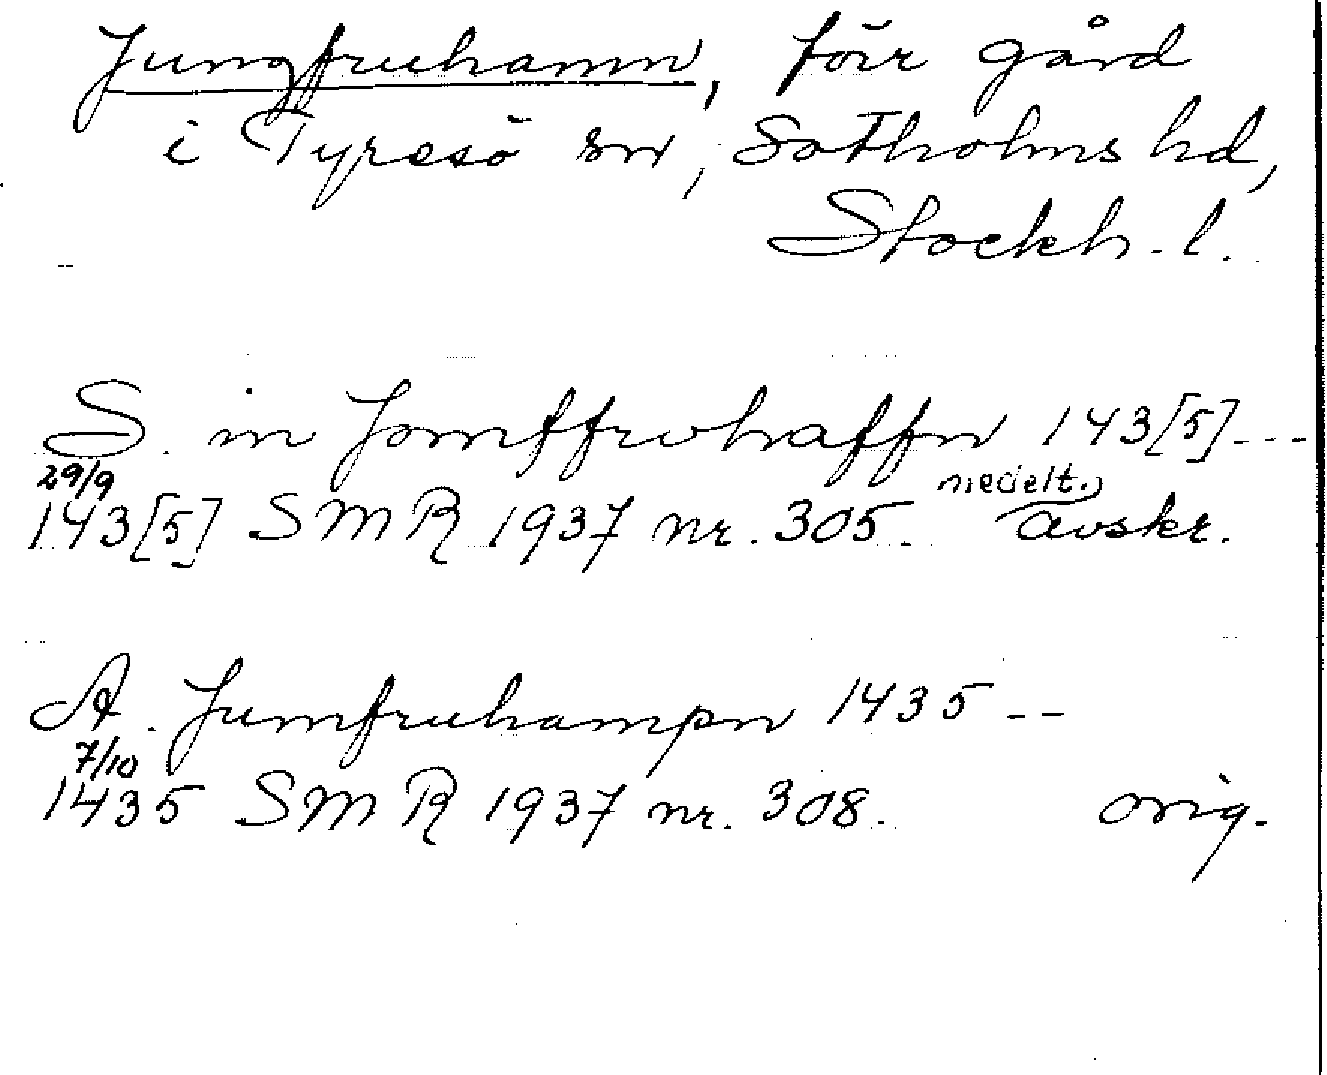 Jungfruhamn, förr gård
i Tyresö sn, Sotholms hd,
Stockh. l.
S. in Jomffrwhaffn 143[5]---
29/9 medelt.
143[5] SMR 1937 nr. 305. avskr.
A. Jumfruhampn 1435 --
7/10
1435 SMR 1937 nr. 308. orig.